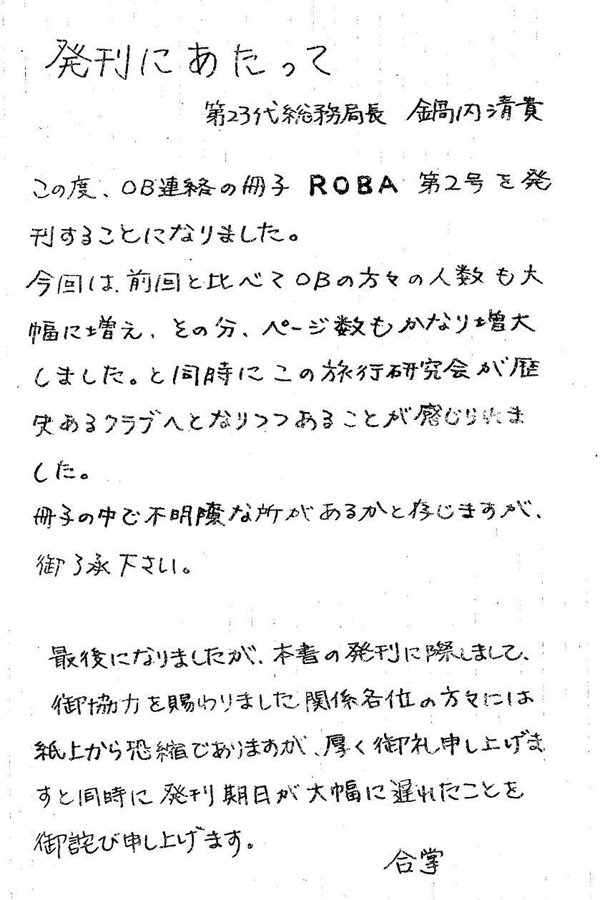 発刊にあたって
第23代総務局長 鍋内清貴
この度、OB連絡の冊子 ROBA 第2号を発
刊することになりました。
今回は、前回と比べてOBの方々の人数も大
幅に増え、その分、ページ数もかなり増大
しました。と同時にこの旅行研究会が歴
史あるクラブへとなりつつあることが感じられま
した。
冊子の中で不明瞭な所があるかと存じますが、
御了承下さい。
最後になりましたが、本書の発刊に際しまして、
御協力を賜わりました関係各位の方々には
紙上から恐縮でありますが、厚く御礼申し上げま
すと同時に発刊期日が大幅に遅れたことを
御詫び申し上げます。
合掌